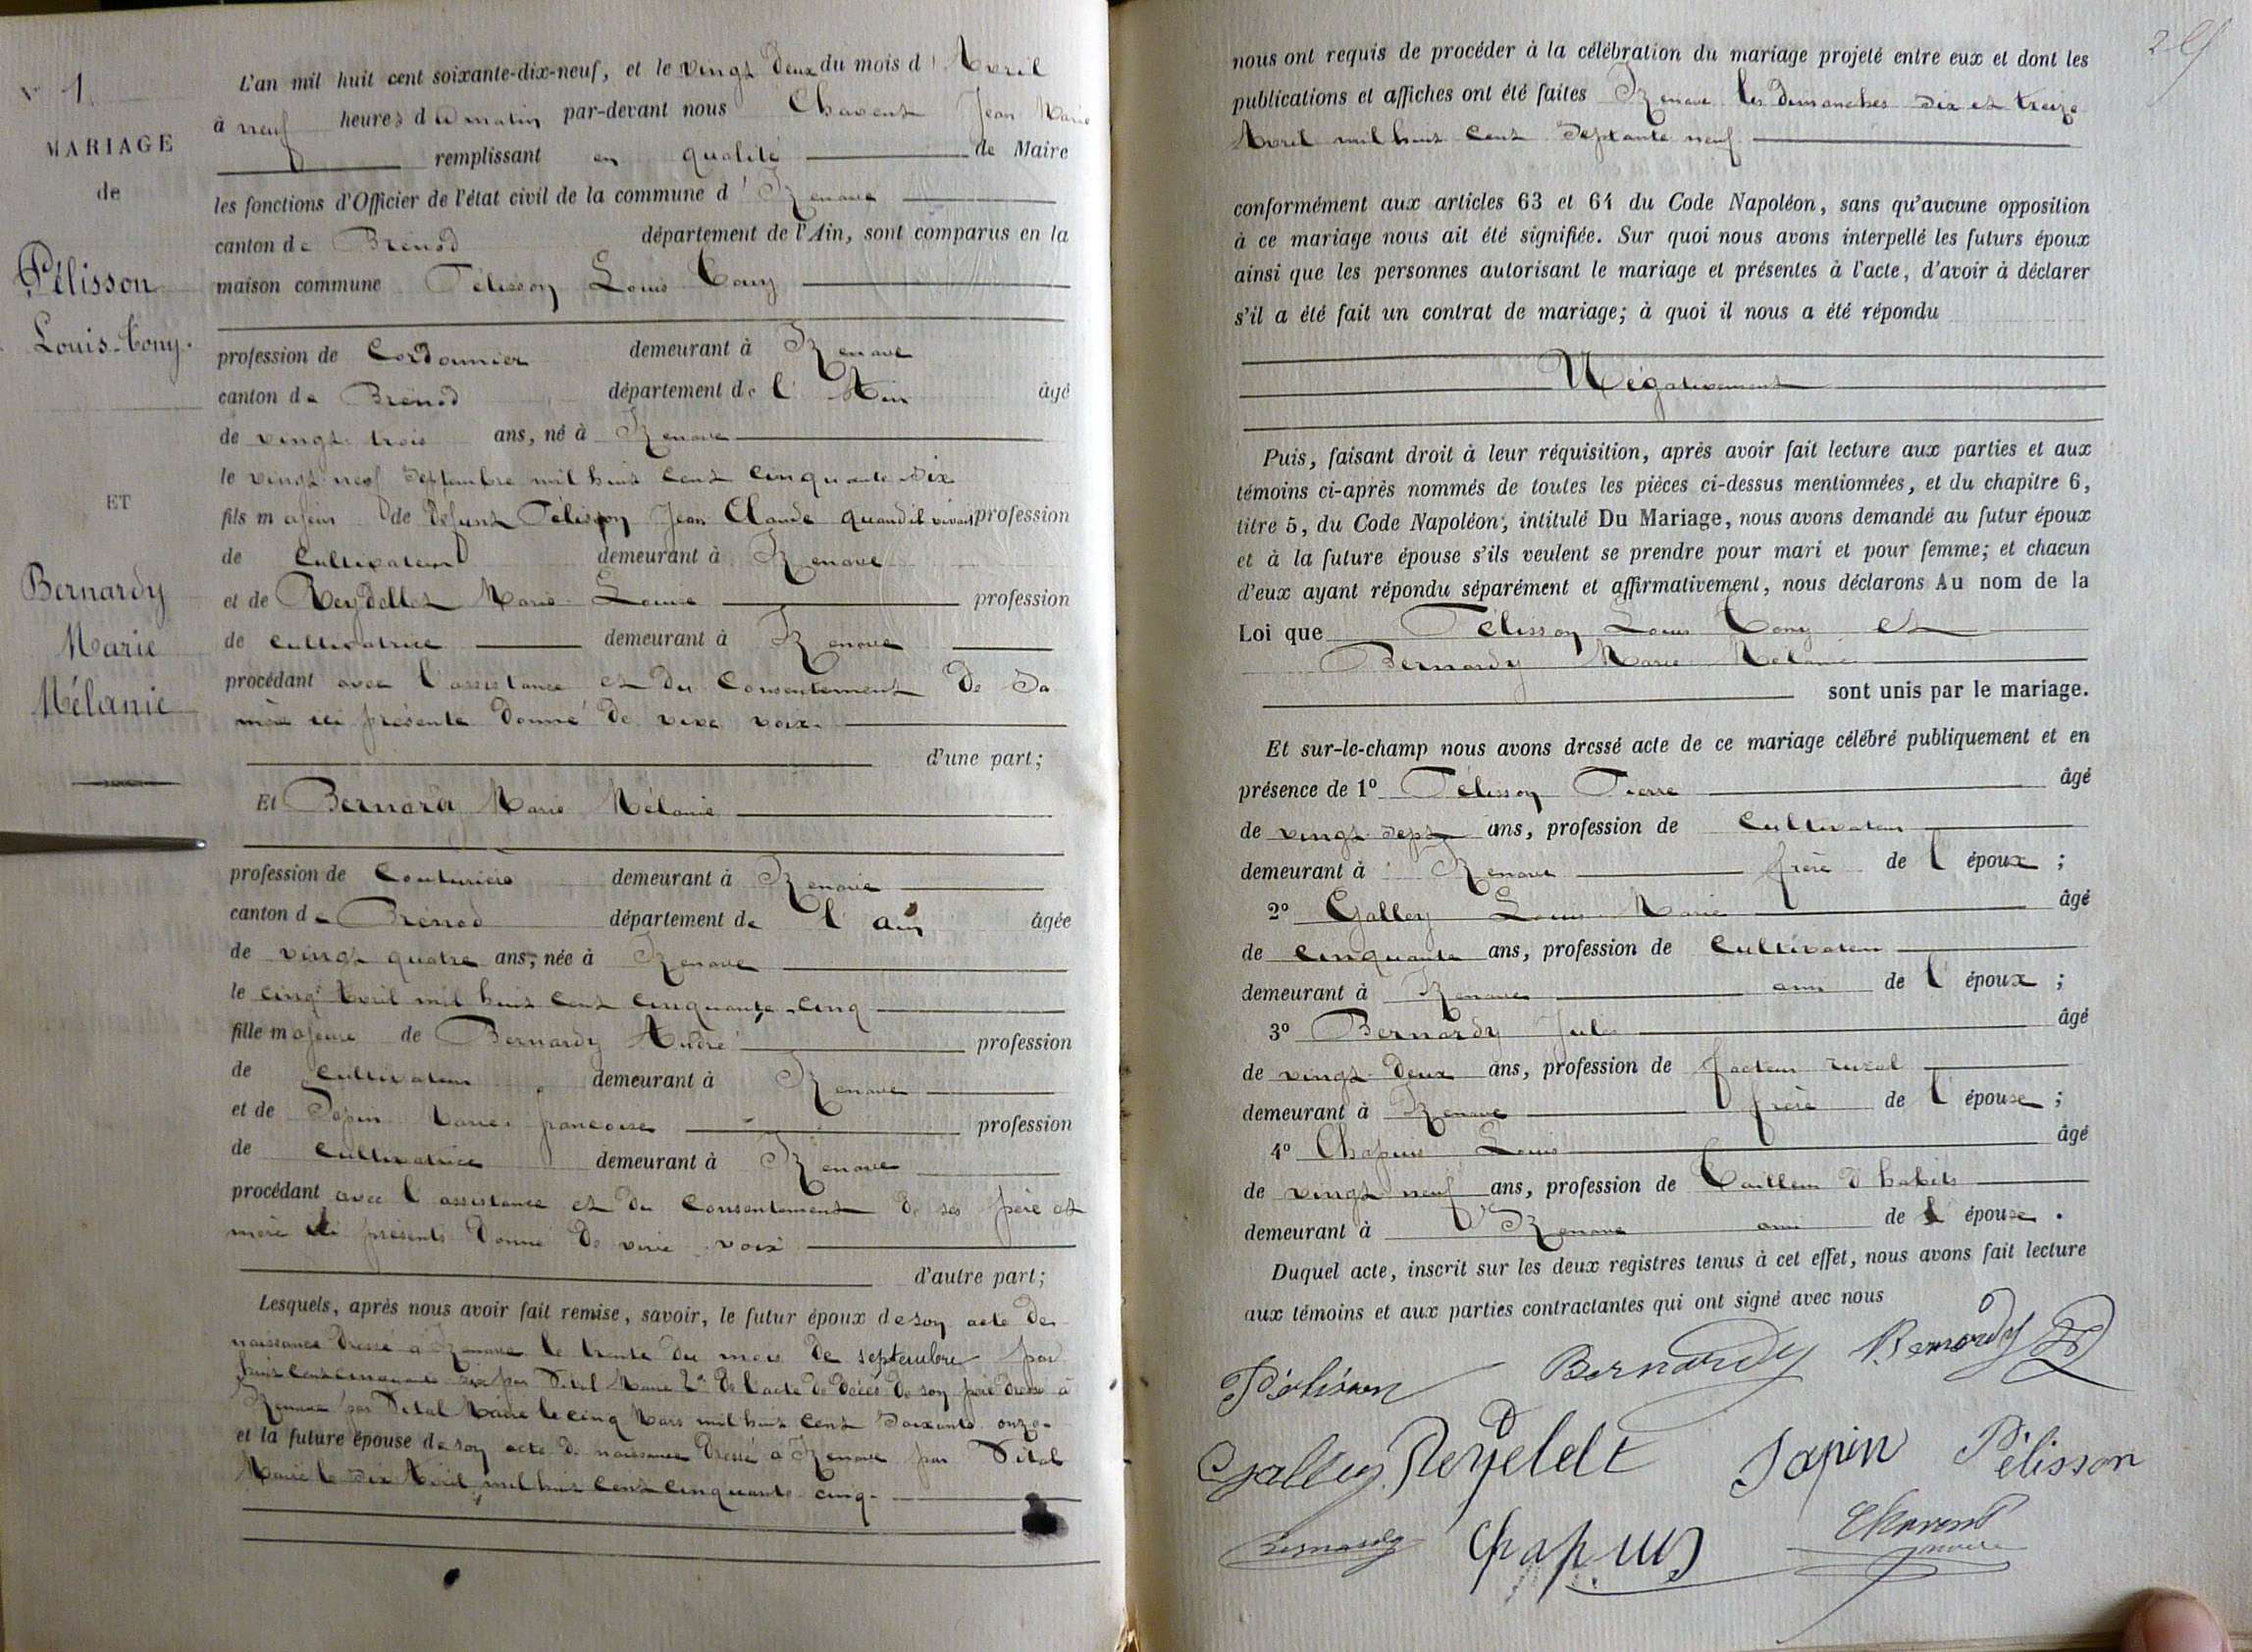 N° 1
MARIAGE
de
Pélisson
Louis-Tony.
ET
Bernardy
Marie
Mélanie
L'an mil huit cent soixante-dix-neuf, et le vingt deux du mois d' Avril
à neuf heures du matin par-devant nous Chavent Jean Marie
remplissant en qualité de Maire
les fonctions d'Officier de l'état civil de la commune d' Izenave
canton de Brénod département de l'Ain, sont comparus en la
maison commune Pélisson Louis Tony
profession de Cordonnier demeurant à Izenave
canton de Brénod département de l' Ain âgé
de vingt trois ans, né à Izenave
le vingt neuf septembre mil huit cent cinquante six
fils majeur de défunt Pélisson Jean Claude quand il vivait profession
de Cultivateur demeurant à Izenave
et de Reydellet Marie Louise profession
de cultivatrice demeurant à Izenave
procédant avec l'assistance et du consentement de sa
mère ici présente donné de vive voix.
d'une part;
Et Bernard Marie Mélanie
profession de Couturière demeurant à Izenave
canton de Brénod département de l'ain âgée
de vingt quatre ans, née à Izenave
le cinq Avril mil huit cent cinquante cinq
fille majeure de Bernardy André profession
de Cultivateur demeurant à Izenave
et de Sapin Marie françoise profession
de Cultivatrice demeurant à Izenave
procédant avec l'assistance et du consentement de ses père et
mère ici présents donné de vive voix
d'autre part;
Lesquels, après nous avoir fait remise, savoir, le futur époux de son acte de
naissance dressé à Izenave le trente du mois de septembre
huit cent cinquante six par Vital Maire 2° de l'acte de décès de son père dressé à
Izenave par Vital Maire le cinq Mars mil huit cent soixante onze
et la future épouse de son acte de naissance dressé à Izenave par Vital
Maire le six Avril mil huit cent cinquante cinq.
nous ont requis de procéder à la célébration du mariage projeté entre eux et dont les
publications et affiches ont été faites Izenave les dimanches six et treize
Avril mil huit cent septante neuf
conformément aux articles 63 et 64 du Code Napoléon, sans qu'aucune opposition
à ce mariage nous ait été signifiée. Sur quoi nous avons interpellé les futurs époux
ainsi que les personnes autorisant le mariage et présentes à l'acte, d'avoir à déclarer
s'il a été fait un contrat de mariage; à quoi il nous a été répondu
Négativement
Puis, faisant droit à leur réquisition, après avoir fait lecture aux parties et aux
témoins ci-après nommés de toutes les pièces ci-dessus mentionnées, et du chapitre 6,
titre 5, du Code Napoléon, intitulé Du Mariage, nous avons demandé au futur époux
et à la future épouse s'ils veulent se prendre pour mari et pour femme; et chacun
d'eux ayant répondu séparément et affirmativement, nous déclarons Au nom de la
Loi que Pélisson Louis Tony et
Bernardy Marie Mélanie
sont unis par le mariage.
Et sur-le-champ nous avons dressé acte de ce mariage célébré publiquement et en
présence de 1° Pélisson Pierre âgé
de vingt sept ans, profession de Cultivateur
demeurant à Izenave frère de l'époux ;
2° Galley Louis Marie âgé
de cinquante ans, profession de Cultivateur
demeurant à Izenave ami de l'époux ;
3° Bernardy Jules âgé
de vingt deux ans, profession de facteur rural
demeurant à Izenave frère de l'épouse ;
4° Chapuis Louis âgé
de vingt neuf ans, profession de Tailleur d'habits
demeurant à Izenave ami de l'épouse .
Duquel acte, inscrit sur les deux registres tenus à cet effet, nous avons fait lecture
aux témoins et aux parties contractantes qui ont signé avec nous
Pélisson Bernardy Bernardy
Galley Reydelet Sapin Pélisson
Bernardy Chapuis Chavent
maire